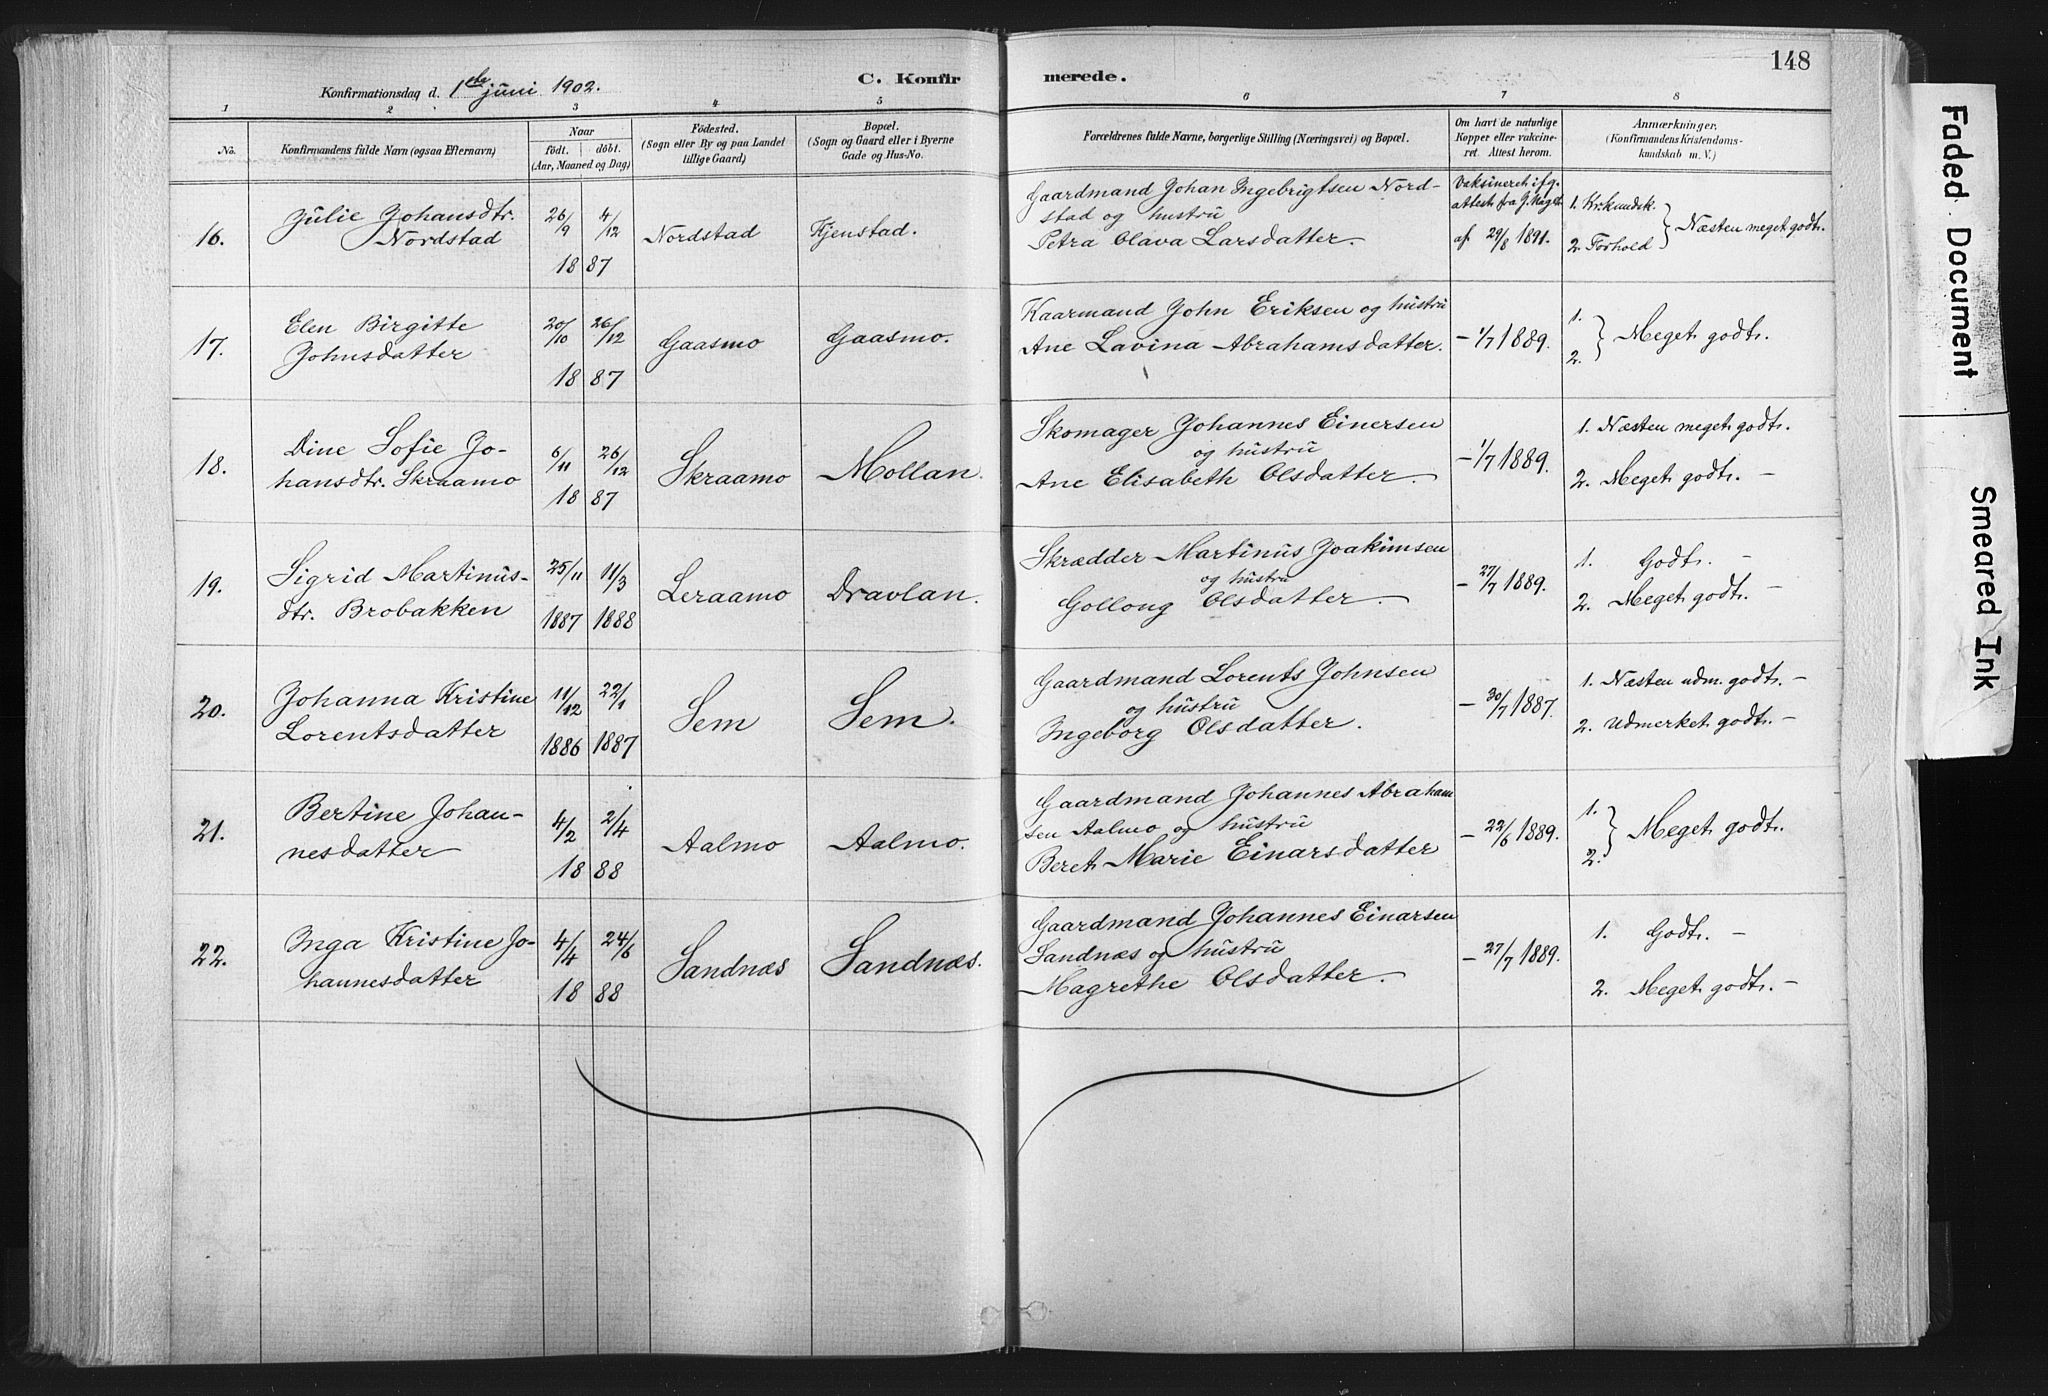 148
C. Konfirmerede.
Konfirmationsdag d. 1ste juni 1902.
1 2 3 4 5 6 7 8
No.
Konfirmandens fulde Navn (ogsaa Efternavn)
Naar
födt. döbt.
(Aar, Maaned og Dag)
Födested.
(Sogn eller By og paa Landet
tillige Gaard)
Bopæl.
(Sogn og Gaard eller i Byerne
Gade og Hus-No.
Forældrenes fulde Navne, borgerlige Stilling (Næringsvei) og Bopæl.
Om havt de naturlige
Kopper eller vakcine-
ret. Attest herom.
Anmærkninger.
(Konfirmandens Kristendoms-
kundskab m. V.)
16.
Julie Johansdtr.
Nordstad
26/9 4/12
18 87
Nordstad
Kjenstad.
Gaardmand Johan Ingebrigtsen Nord-
stad og hustru
Petra Olava Larsdatter.
Vaksineret ifg.
attest fra
af 29/8 1891.
1. Kr. kundsk.
2. Forhold
Næsten meget godt.
17.
Elen Birgitte
Johnsdatter
20/10 26/12
18 87
Gaasmo
Gaasmo.
Kaarmand John Eriksen og hustru
Ane Lavina Abrahamsdatter.
- 1/7 1889.
1.
2.
Meget godt.
18.
Dine Sofie Jo-
hansdtr. Skraamo
6/11 26/12
18 87
Skraamo
Mollan.
Skomager Johannes Einersen
og hustru
Ane Elisabeth Olsdatter.
- 1/7 1889.
1. Næsten meget godt.
2. Meget godt. -
19.
Sigrid Martinus-
dtr. Brobakken
25/11 11/3
1887 1888
Leraamo
Dravlan.
Skrædder Martinus Joakimsen
og hustru
Gollong Olsdatter.
- 27/7 1889.
1. Godt. -
2. Meget godt. -
20.
Johanna Kristine
Lorentsdatter
11/12 22/1
1886 1887
Sem
Sem.
Gaardmand Lorents Johnsen
og hustru
Ingeborg Olsdatter.
- 30/7 1887.
1. Næsten udm. godt. -
2. Udmerket godt. -
21.
Bertine Johan-
nesdatter
4/2 2/4
18 88
Aalmo
Aalmo.
Gaardmand Johannes Abraham
sen Aalmo og hustru
Beret Marie Einarsdatter
- 22/6 1889.
1.
2.
Meget godt.
22.
Inga Kristine Jo-
hannesdatter
4/4 24/6
18 88
Sandnæs
Sandnæs.
Gaardmand Johannes Einarsen
Sandnæs og hustru
Magrethe Olsdatter.
- 27/7 1889.
1. Godt. -
2. Meget godt. -
Faded Document
Smeared Ink